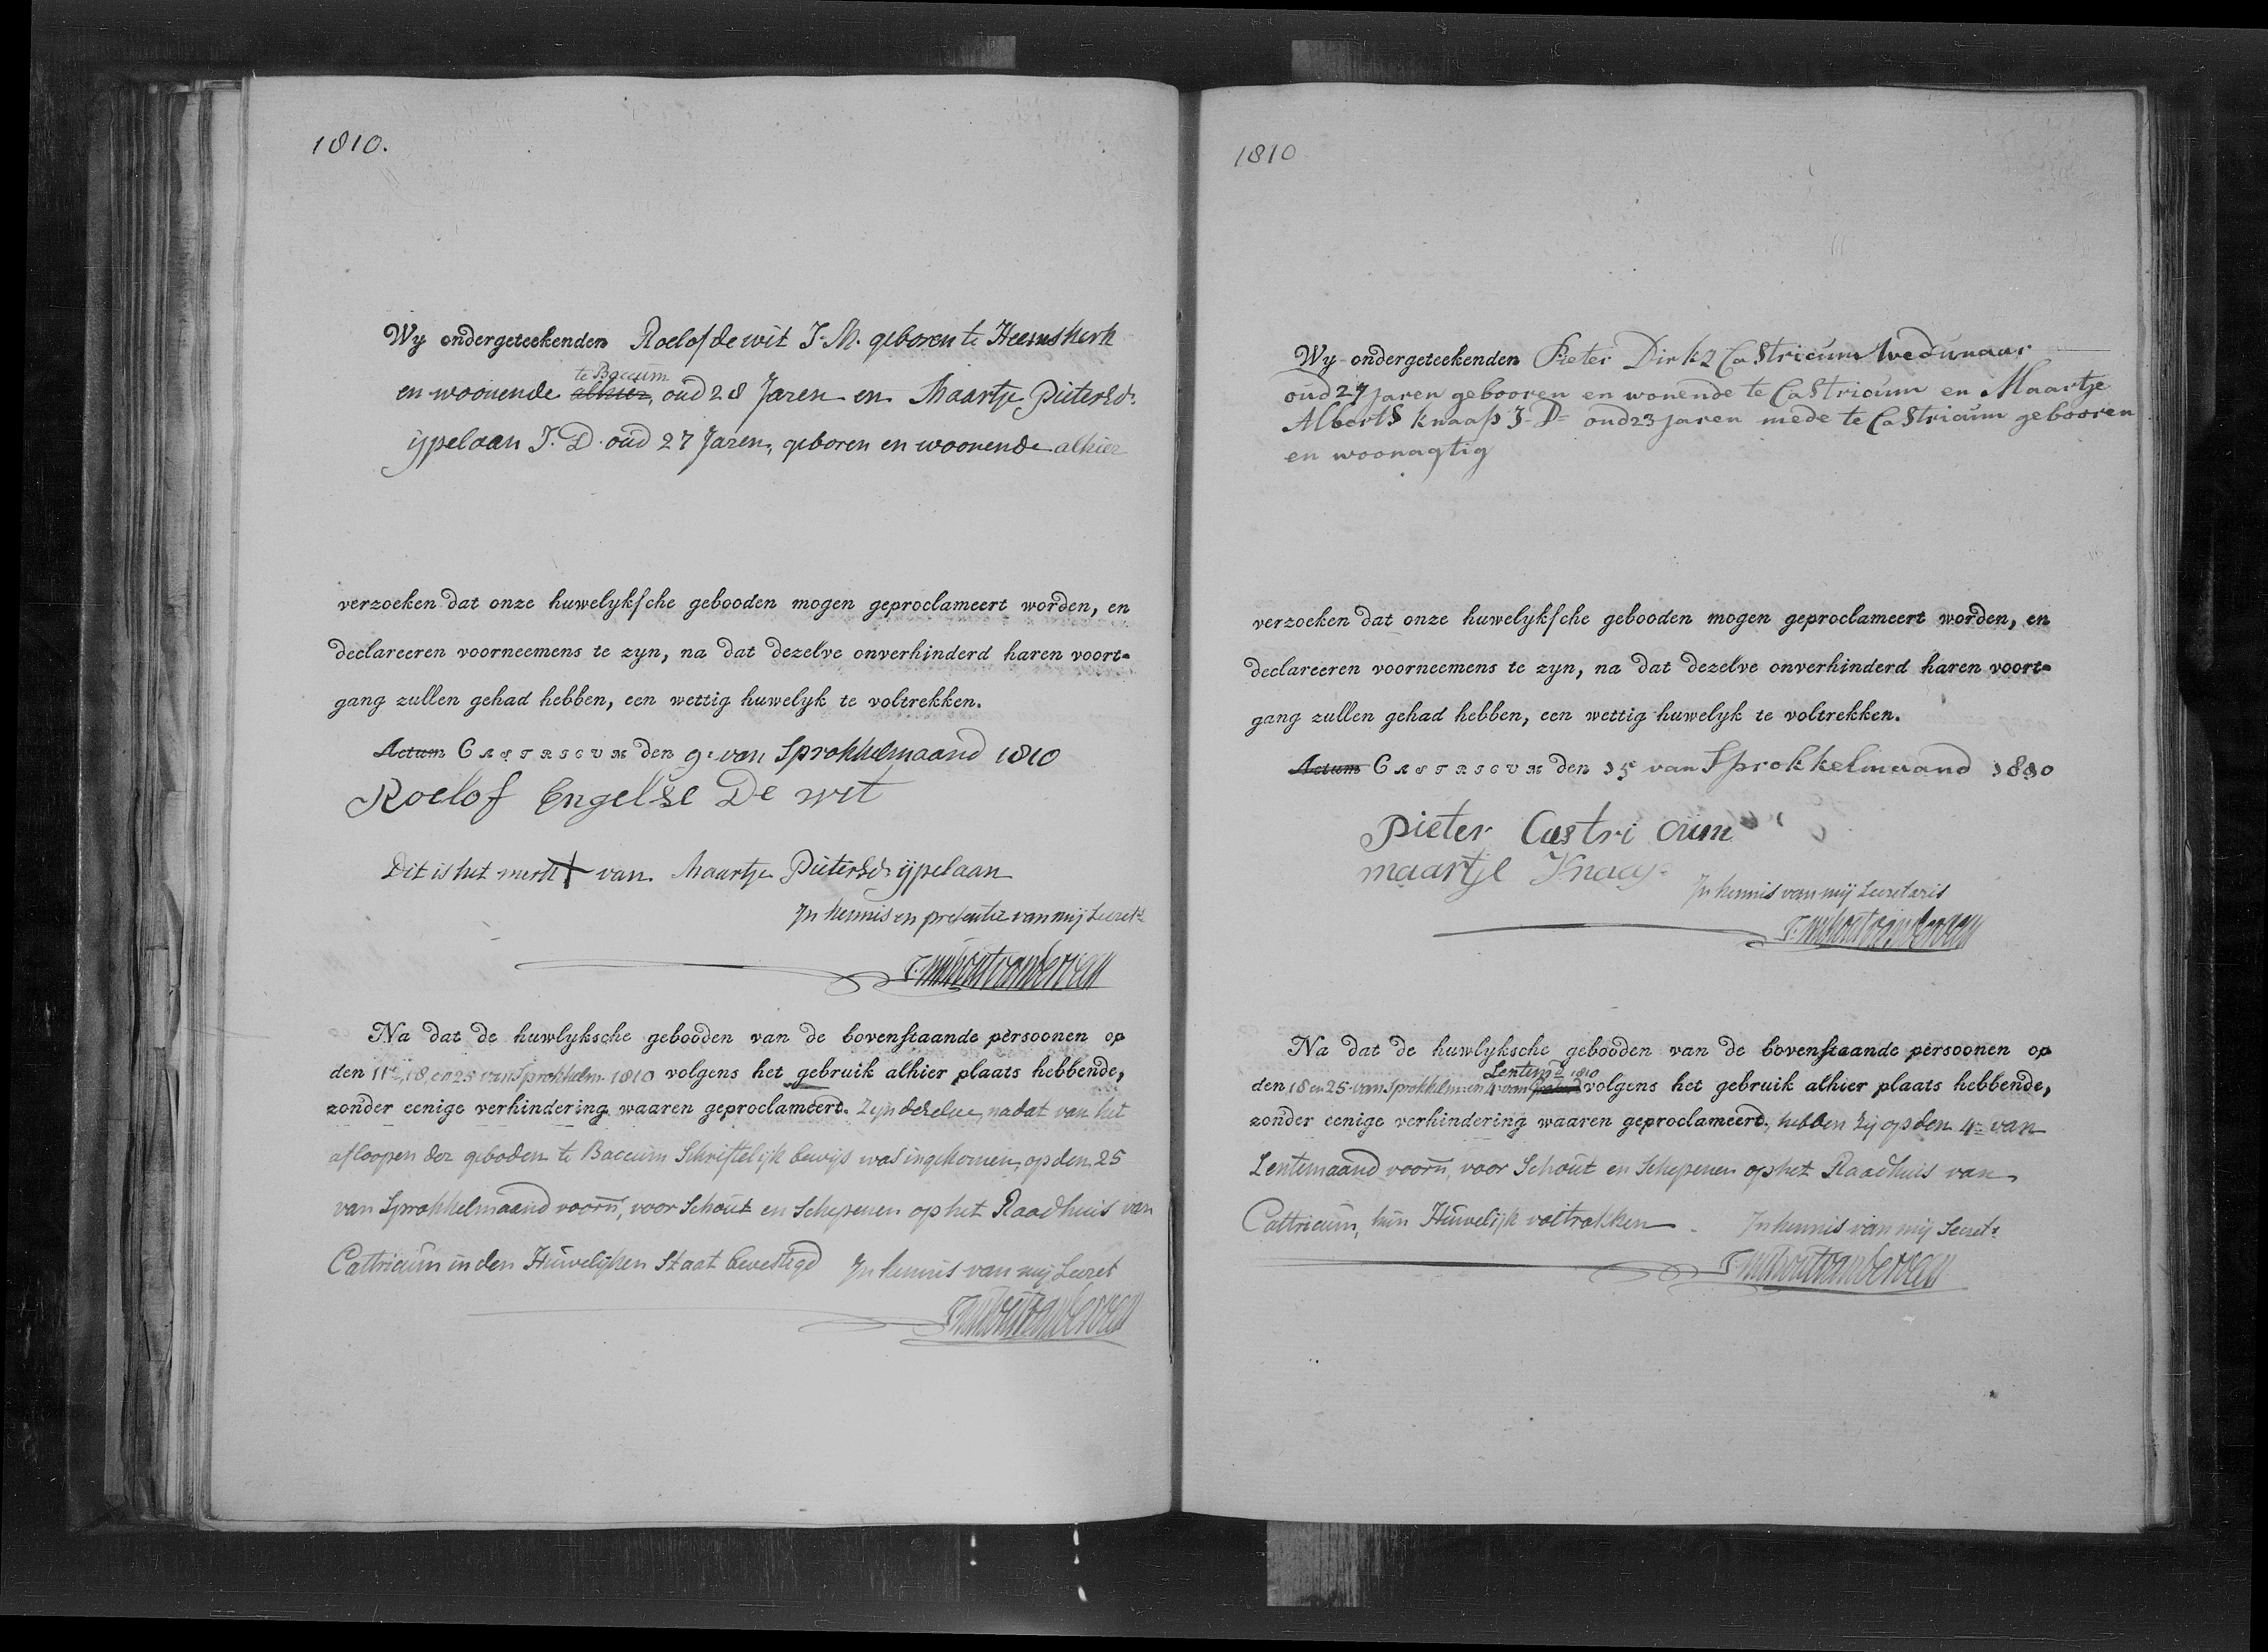 1810.
Wy ondergeteekenden Roelof de wit J. M. geboren te Heemskerk
te Baccum
en woonende alhier, oud 28 Jaren en Maartje Pietersdr.
ijpelaan J. D. oud 27 Jaren, geboren en woonende alhier
verzoeken dat onze huwelyksche gebooden mogen geproclameert worden, en
declareeren voorneemens te zyn, na dat dezelve onverhinderd haren voort-
gang zullen gehad hebben, een wettig huwelyk te voltrekken.
Actum CASTRICUM den 9e van Sprokkelmaand 1810
Roelof Engelse De wit
Dit is het merk + van Maartje Pietersdr ijpelaan
In kennis en presentie van mij Secrets
Na dat de huwlyksche gebooden van de bovenstaande persoonen op
den 11e, 18, en 25 van Sprokkelm. 1810 volgens het gebruik alhier plaats hebbende,
zonder eenige verhindering waaren geproclameert. Zijn dezelve, nadat van het
afloopen der geboden te Baccum Schriftelijk bewijs was ingekomen, op den 25
van Sprokkelmaand voorn, voor Schout en Schepenen op het Raadhuis van
Castricum in den Huwelijken Staat bevestigd In kennis van mij Secret
1810
Wy ondergeteekenden Pieter Dirksz Castricum Weduwnaar
oud 27 jaren gebooren en wonende te Castricum en Maartje
Alberts knaap J. D= oud 23 jaren mede te Castricum gebooren
en woonagtig
verzoeken dat onze huwelyksche gebooden mogen geproclameert worden, en
declareeren voorneemens te zyn, na dat dezelve onverhinderd haren voort-
gang zullen gehad hebben, een wettig huwelyk te voltrekken.
Actum CASTRICUM den 15 van Sprokkelmaand 1810
Pieter Castricum
maartje Knaap
In kennis van mij Secretaris
Na dat de huwlyksche gebooden van de bovenstaande persoonen op
Lentemd 1810
den 18 en 25 van Sprokkelm: en 4 van volgens het gebruik alhier plaats hebbende,
zonder eenige verhindering waaren geproclameerd, hebben zij op den 4e van
Lentemaand voorn, voor Schout en Schepenen op het Raadhuis van
Castricum, hun Huwelijk voltrokken. In kennis van mij Secrets